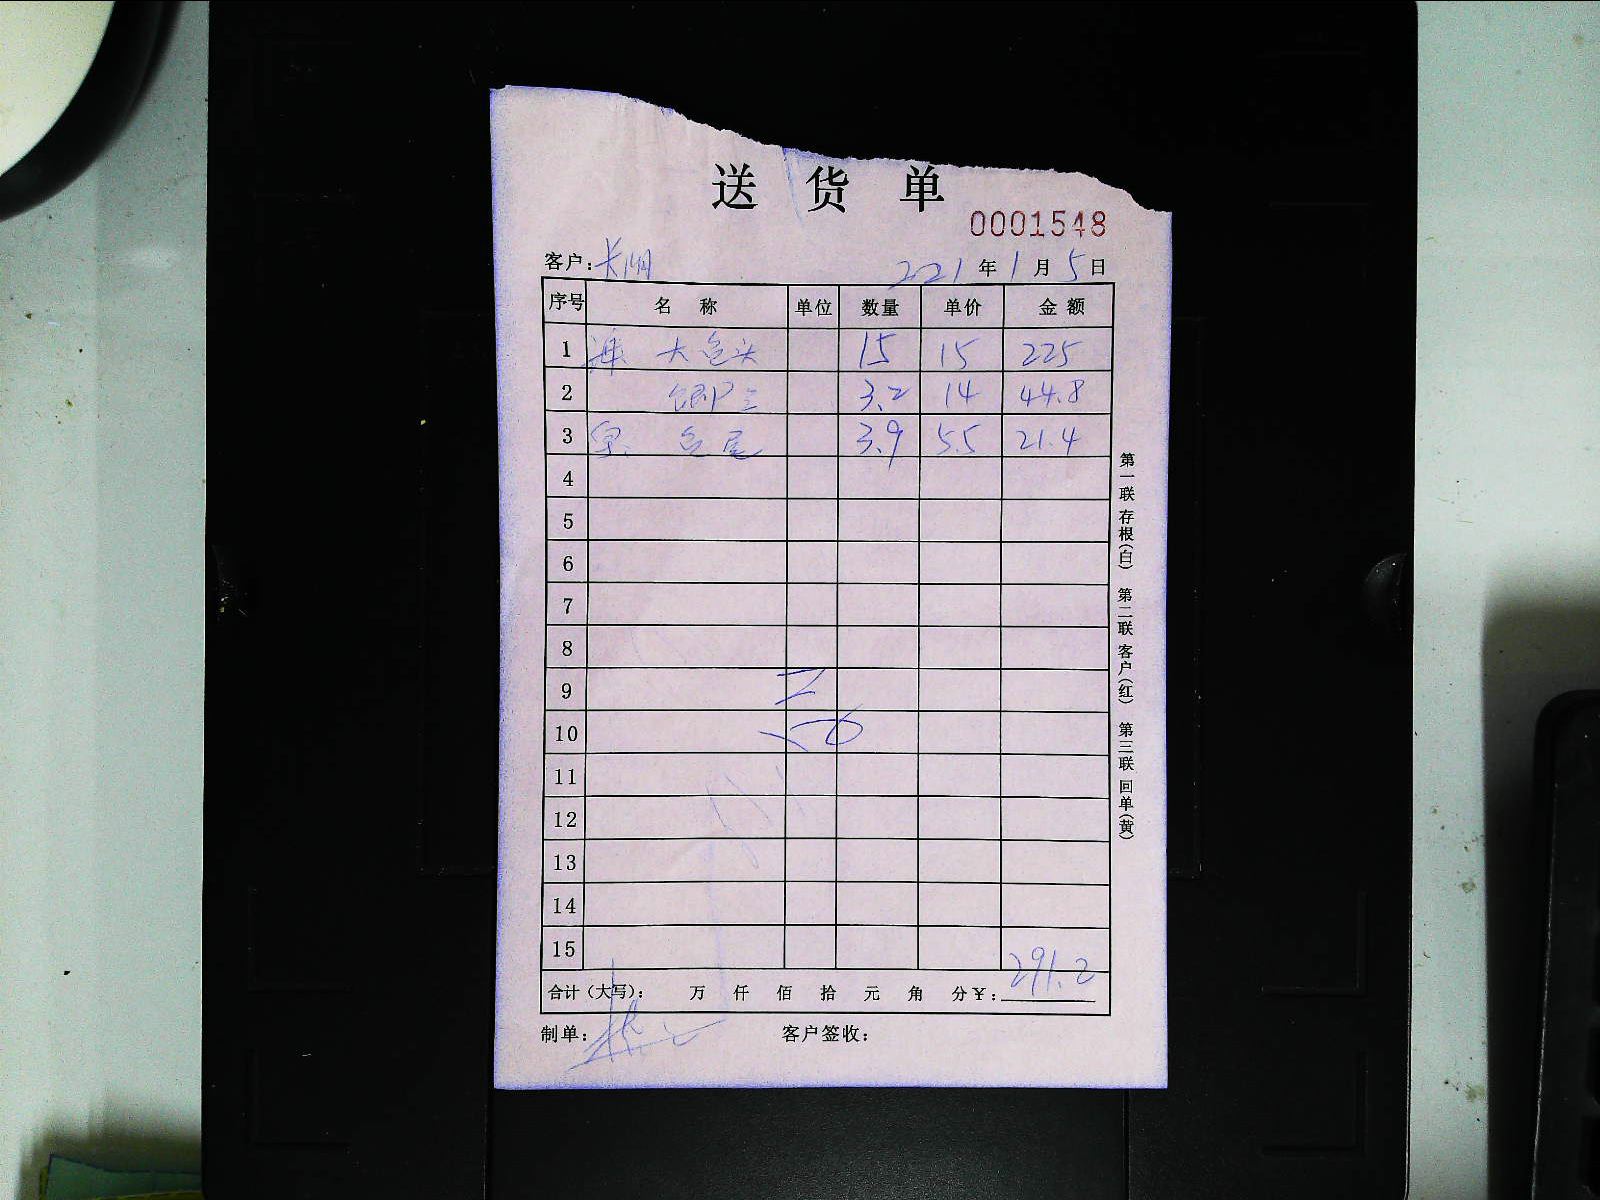 送货单
0001548
客户: 2021年1月5日
序号 名称 单位 数量 单价 金额
1 大鱼头 15 15 225
2 3.2 14 44.8
3 鱼尾 3.9 5.5 21.4
4
5
6
7
8
9
10
11
12
13
14
15
合计(大写): 万 仟 佰 拾 元 角 分¥: 291.2
制单: 客户签收:
第一联 存根(白) 第二联 客户(红) 第三联 回单(黄)